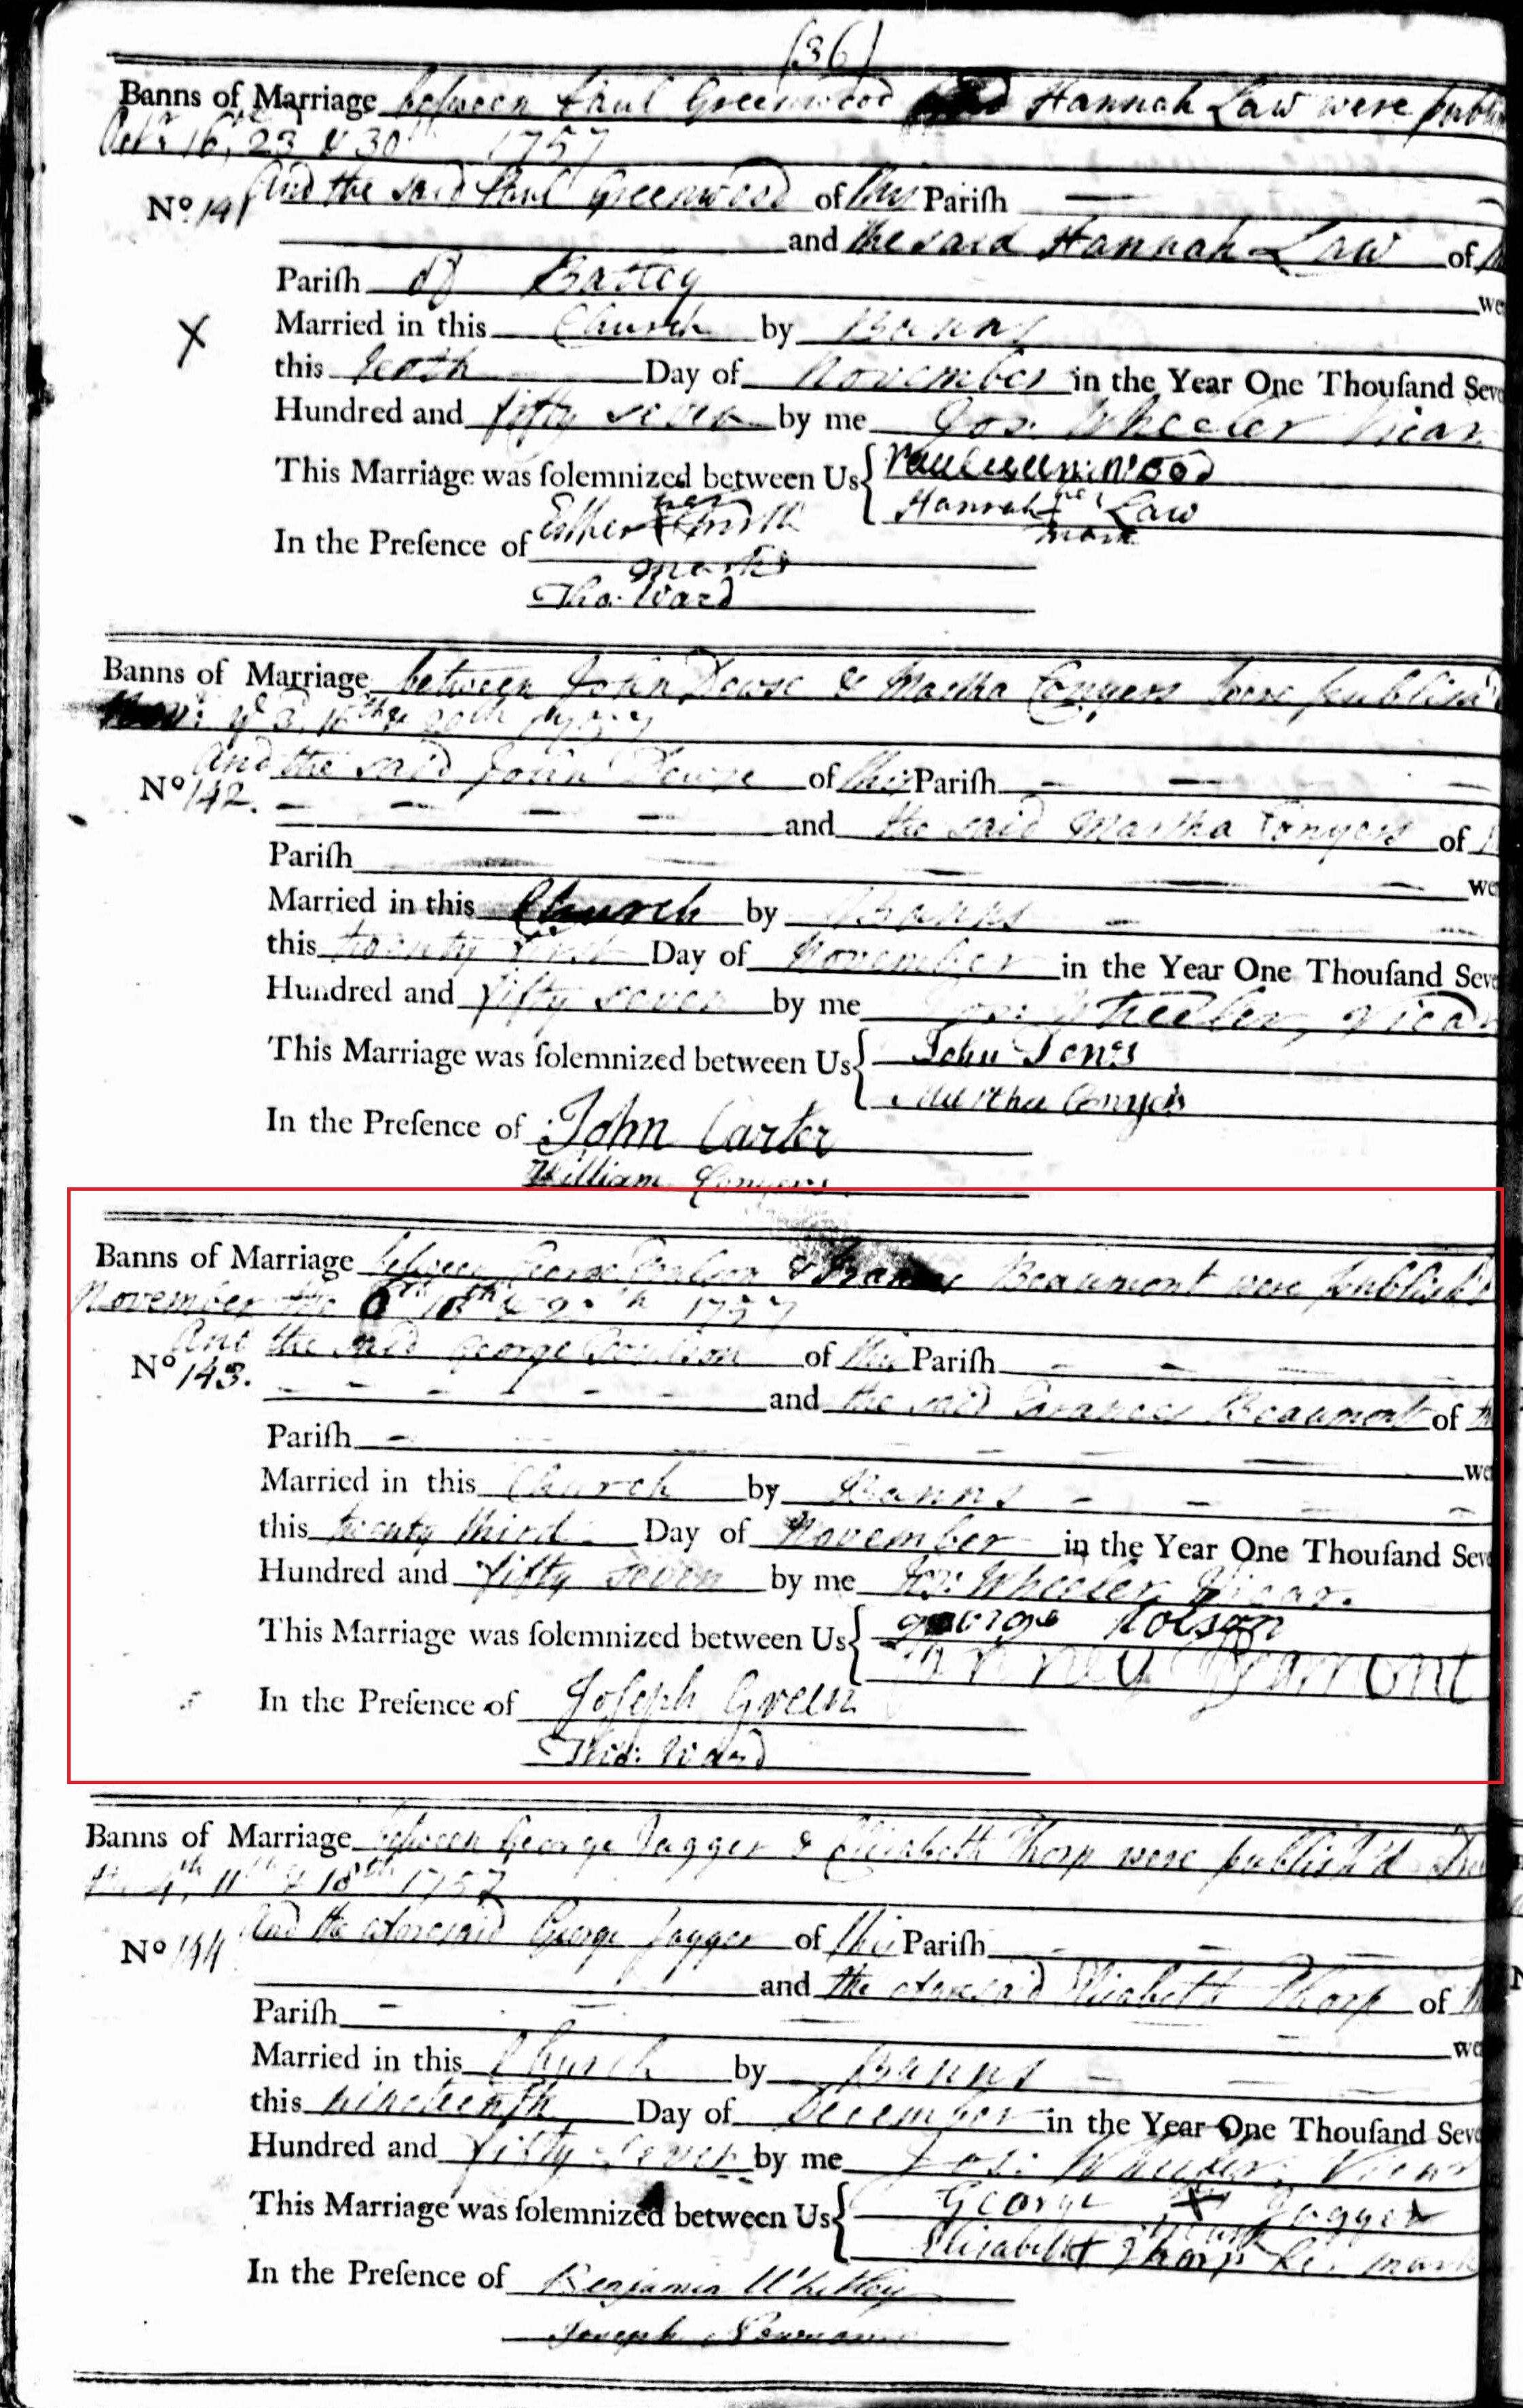 (36)
Banns of Marriage between Paul Greenwood and Hannah Law were publi
Octr 16, 23 & 30th 1757
And the said Paul Greenwood of this Parish
No 141
and the said Hannah Law of
Pariſh of Batley
we
Married in this Church by Banns
this tenth Day of November in the Year One Thouſand Seve
Hundred and fifty seven by me Jos: Wheeler Vicar
This Marriage was ſolemnized between Us Paul Greenwood
Hannah her Law
mark
In the Preſence of Esther her Firth
mark
Tho. Ward
Banns of Marriage between John Dewse & Martha Conyers were publish'd
1757
And the said John Dewse of this Pariſh
No 142.
and the said Martha Conyers of
Pariſh
we
Married in this Church by Banns
this twenty first Day of November in the Year One Thouſand Seve
Hundred and fifty seven by me Jos: Wheeler, Vicar
This Marriage was ſolemnized between Us John
Martha Conyers
In the Preſence of John Carter
William Conyers
Banns of Marriage between George & Frances Beaumont were publish'd
November the 6th 13th & 20th 1757
And the said George of this Pariſh
No 143.
and the said Frances Beaumont of th
Pariſh
we
Married in this Church by Banns
this twenty third Day of November in the Year One Thouſand Seve
Hundred and fifty seven by me Jos: Wheeler, Vicar.
This Marriage was ſolemnized between Us george
In the Preſence of Joseph Green
Tho: Ward
Banns of Marriage between George Jagger & Elizabeth Thorp were publish'd De
4th, 11th & 18th 1757
And the aforesaid George Jagger of this Pariſh
No 144
and the aforesaid Elisabeth Thorp of
Pariſh
we
Married in this Church by Banns
this nineteenth Day of December in the Year One Thouſand Seve
Hundred and fifty seven by me Jos: Wheeler, Vicar
This Marriage was ſolemnized between Us George X Jagger
mark
Elisabeth Thorp her mark
In the Preſence of Benjamin Whitley
Joseph Newsome